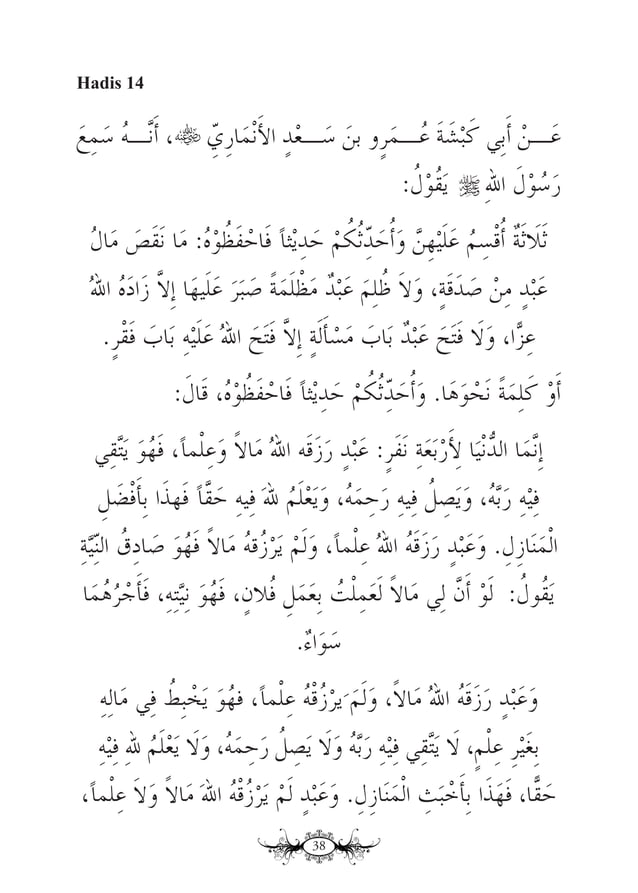 Hadis 14
عَـــنْ أَبِي كَبْشَةَ عُـــمَرٍو بنَ سَـــعْدٍ الأَنْمَارِيِّ ﵁، أَنَّـــهُ سَمِعَ
رَسُوْلَ اللهِ ﷺ يَقُوْلُ:
ثَلَاثَةٌ أُقْسِمُ عَلَيْهِنَّ وَأُحَدِّثُكُمْ حَدِيْثاً فَاحْفَظُوْهُ: مَا نَقَصَ مَالُ
عَبْدٍ مِنْ صَدَقَةٍ، وَلاَ ظُلِمَ عَبْدٌ مَظْلَمَةً صَبَرَ عَلَيهَا إِلاَّ زَادَهُ اللهُ
عِزًّا، وَلَا فَتَحَ عَبْدٌ بَابَ مَسْأَلَةٍ إِلاَّ فَتَحَ اللهُ عَلَيْهِ بَابَ فَقْرٍ.
أَوْ كَلِمَةً نَحْوَهَا. وَأُحَدِّثُكُمْ حَدِيْثاً فَاحْفَظُوْهُ، قَالَ:
إِنَّمَا الدُّنْيَا لِأَرْبَعَةِ نَفَرٍ: عَبْدٍ رَزَقَه اللهُ مَالاً وَعِلْماً، فَهُوَ يَتَّقِي
فِيْهِ رَبَّهُ، وَيَصِلُ فِيهِ رَحِمَهُ، وَيَعْلَمُ لِلهَ فِيهِ حَقَّاً فَهذَا بِأَفْضَلِ
الْمَنَازِلِ. وَعَبْدٍ رَزَقَهُ اللهُ عِلْماً، وَلَمْ يَرْزُقهُ مَالاً فَهُوَ صَادِقُ النِّيَّةِ
يَقُولُ: لَوْ أَنَّ لِي مَالاً لَعَمِلْتُ بِعَمَلِ فُلانٍ، فَهُوَ نِيَّتِهِ، فَأَجْرُهُمَا
سَوَاءٌ.
وَعَبْدٍ رَزَقَهُ اللهُ مَالاً، وَلَمَ يَرْزُقْهُ عِلْماً، فهُوَ يَخْبِطُ فِي مَالِهِ
بِغَيْرِ عِلْمٍ، لَا يَتَّقِي فِيْهِ رَبَّهُ وَلَا يَصِلُ رَحِمَهُ، وَلَا يَعْلَمُ لِلهِ فِيْهِ
حَقَّا، فَهَذَا بِأَخْبَثِ الْمَنَازِلِ. وَعَبْدٍ لَمْ يَرْزُقْهُ اللهَ مَالاً وَلاَ عِلْماً،
38